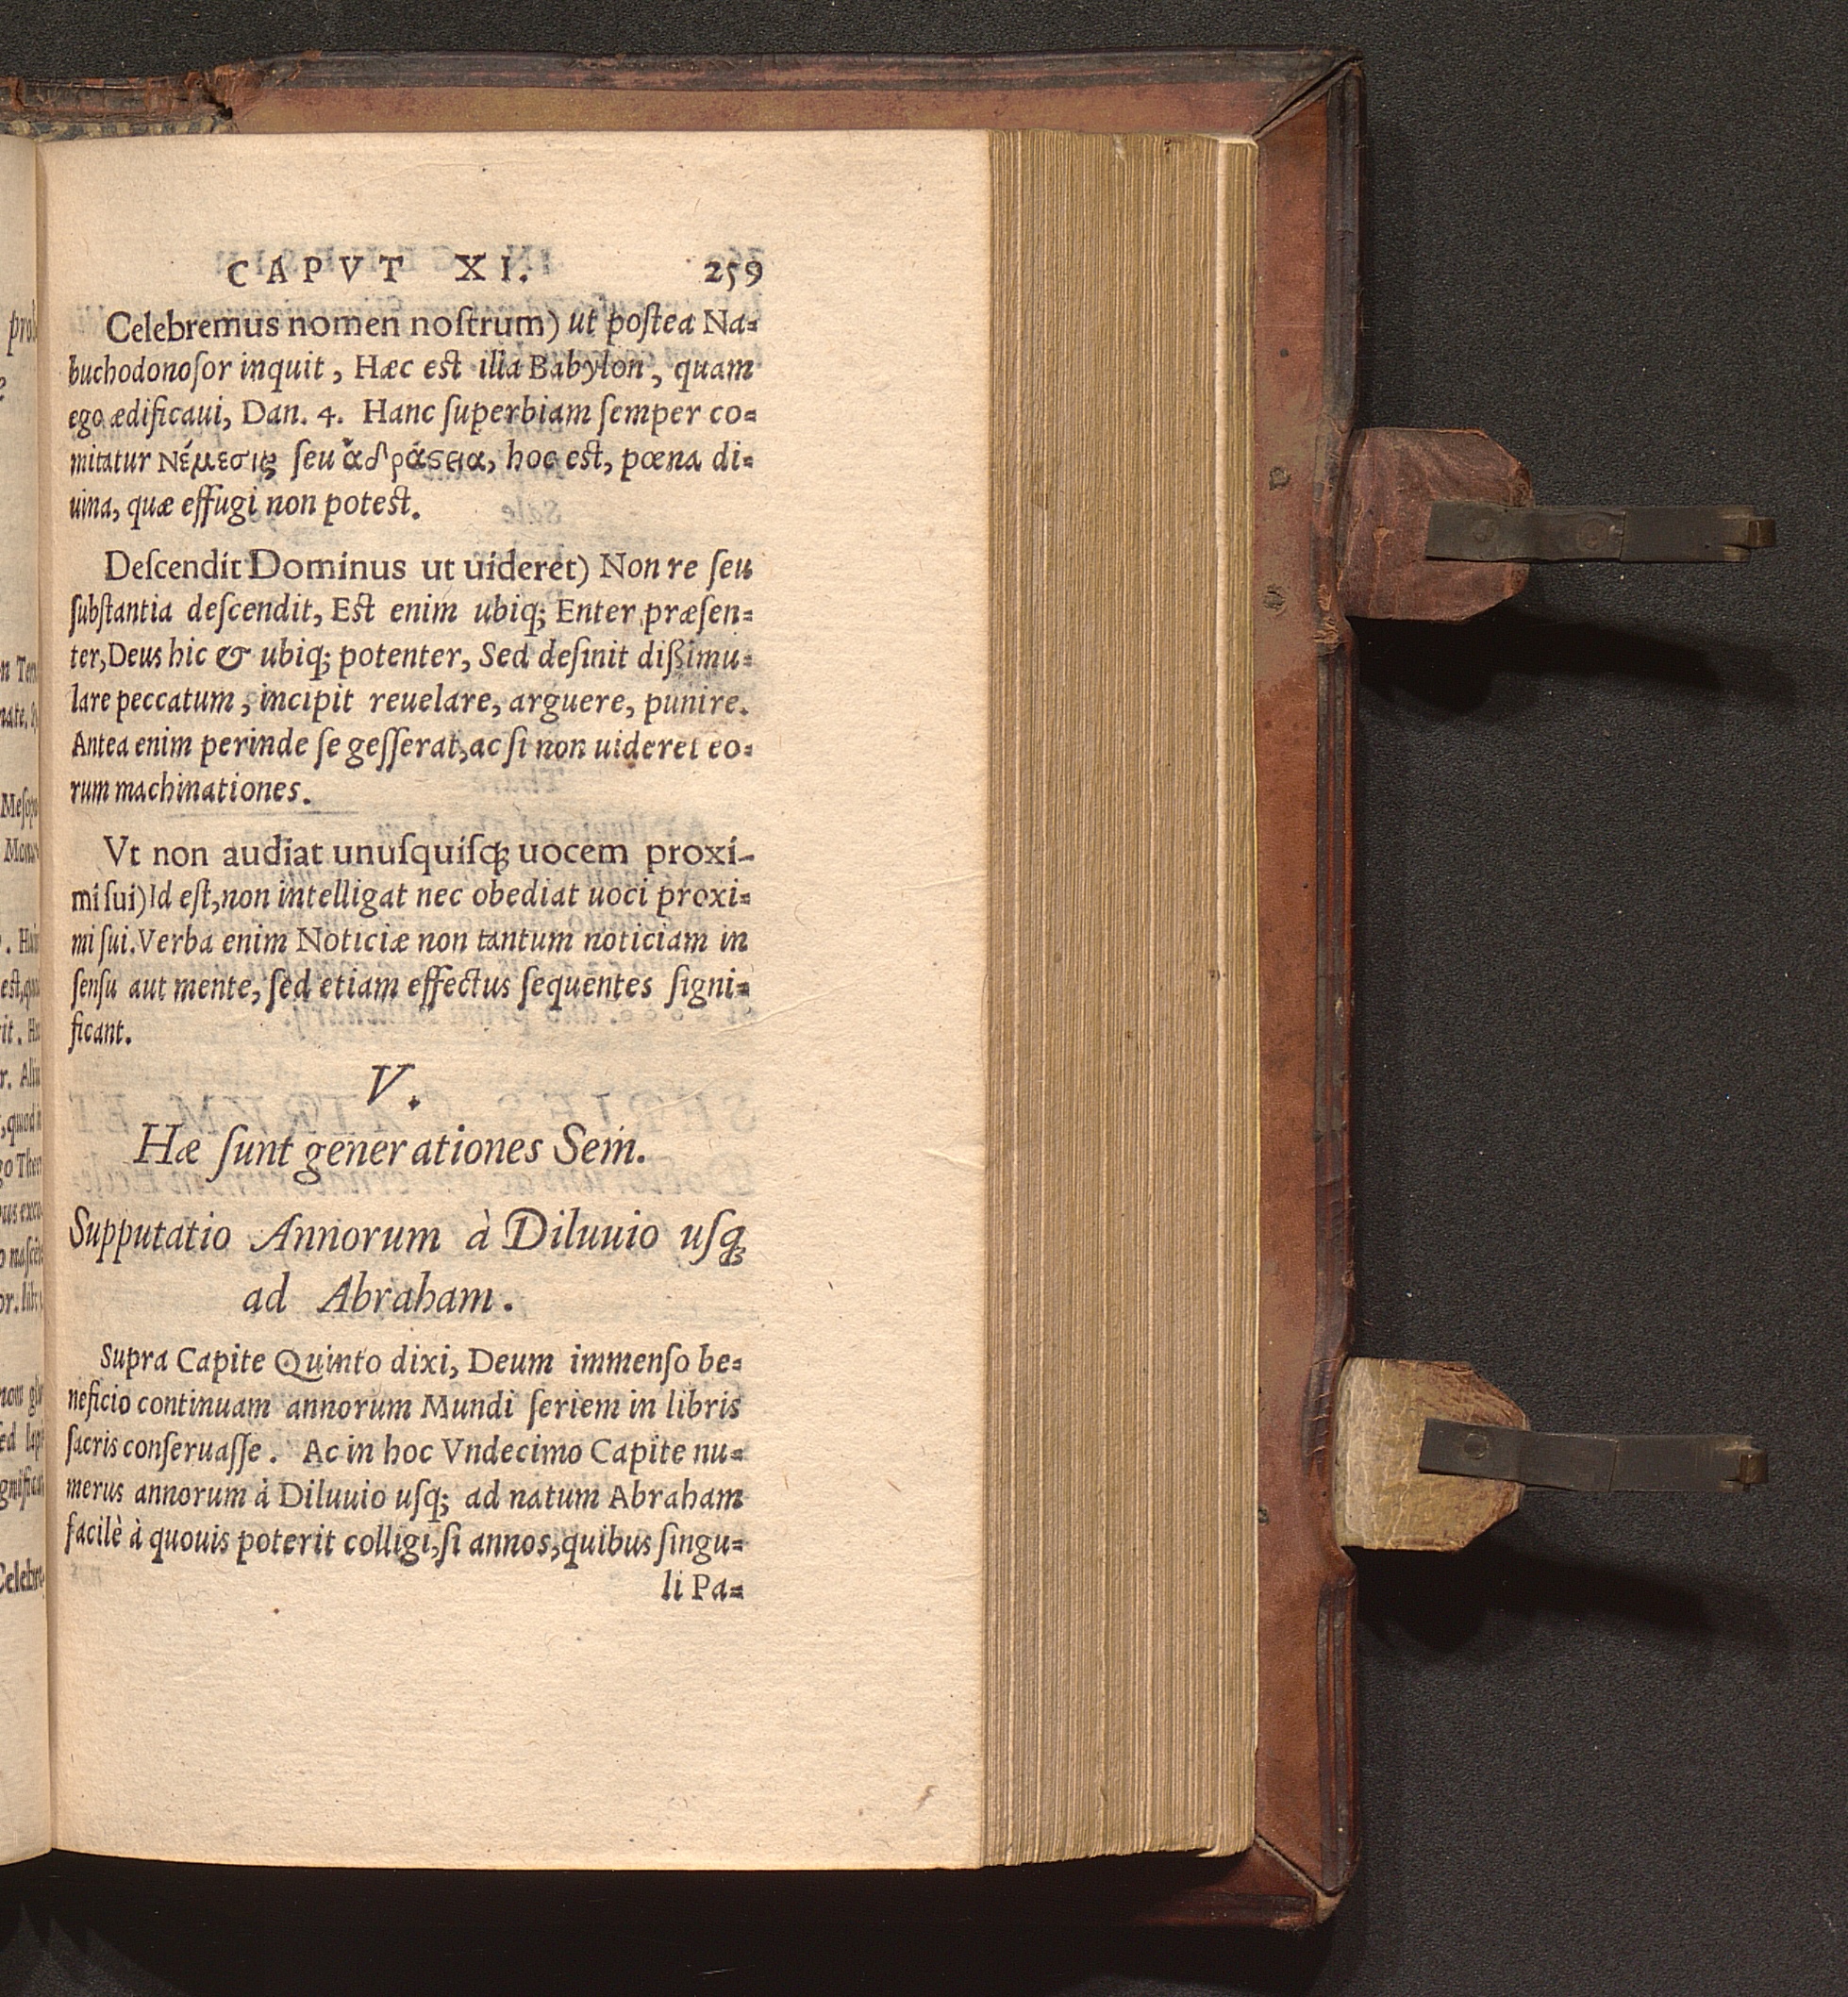 CAPVT XI. 259
Celebremus nomen noſtrum) ut poſtea Na=
buchodonoſor inquit, Hæc est illa Babylon, quam
ego ædificaui, Dan. 4. Hanc ſuperbiam ſemper co=
mitatur Νέμεσις ſeu ἀδράςεια, hoc est, pœna di=
uina, quæ effugi non potest.
Deſcendit Dominus ut uideret) Non re ſeu
ſubſtantia deſcendit, Est enim ubiq; Enter præſen=
ter, Deus hic & ubiq; potenter, Sed deſinit dißimu=
lare peccatum, incipit reuelare, arguere, punire.
Antea enim perinde ſe geſſerat, ac ſi non uideret eo=
rum machinationes.
Vt non audiat unuſquiſq; uocem proxi-
mi ſui) Id eſt, non intelligat nec obediat uoci proxi=
mi ſui. Verba enim Noticiæ non tantum noticiam in
ſenſu aut mente, ſed etiam effectus ſequentes ſigni=
ficant.
V.
Hæ ſunt generationes Sem.
Supputatio Annorum à Diluuio uſq;
ad Abraham.
Supra Capite Quinto dixi, Deum immenſo be=
neficio continuam annorum Mundi ſeriem in libris
ſacris conſeruaſſe. Ac in hoc Vndecimo Capite nu=
merus annorum à Diluuio uſq; ad natum Abraham
facilè à quouis poterit colligi, ſi annos, quibus ſingu=
li Pa=